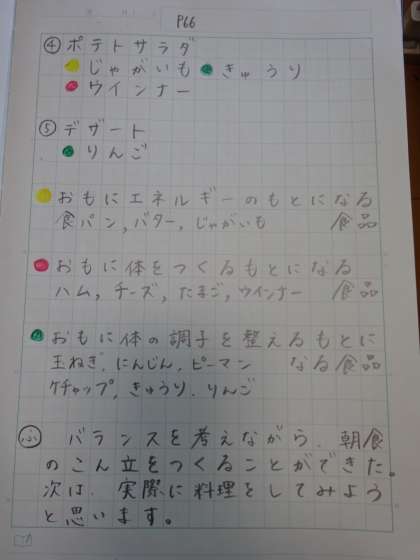 P66
④ ポテトサラダ
じゃがいも きゅうり
ウインナー
⑤ デザート
りんご
おもにエネルギーのもとになる
食パン, バター, じゃがいも 食品
おもに体をつくるもとになる
ハム, チーズ, たまご, ウインナー 食品
おもに体の調子を整えるもとに
玉ねぎ, にんじん, ピーマン なる食品
ケチャップ, きゅうり, りんご
ふ バランスを考えながら、朝食
のこん立をつくることができた。
次は、実際に料理をしてみよう
と思います。